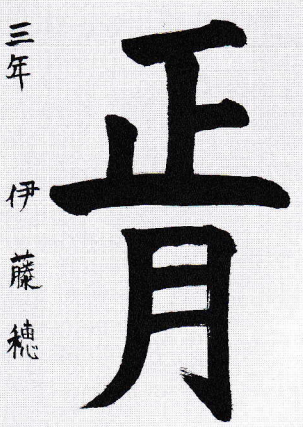 正月
三年 伊藤穂